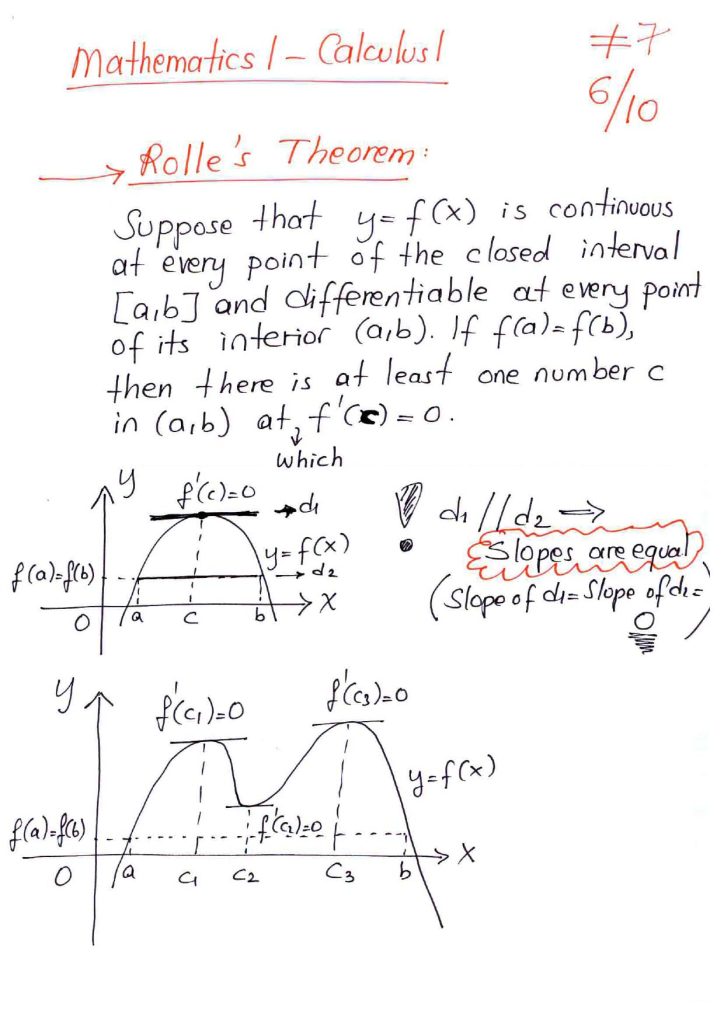 Mathematics 1 - Calculus 1
#7
6/10
→ Rolle's Theorem:
Suppose that y=f(x) is continuous
at every point of the closed interval
[a,b] and differentiable at every point
of its interior (a,b). If f(a)=f(b),
then there is at least one number c
in (a,b) at f'(c) = 0.
which
y
f'(c)=0
→d1
y=f(x)
f(a)=f(b)
→ d2
x
0
a
c
b
! d1//d2 ⇒
Slopes are equal
(Slope of d1= Slope of d2=
0)
y
f'(c1)=0
f'(c3)=0
y=f(x)
f(a)=f(b)
f'(c2)=0
x
0
a
c1
c2
c3
b